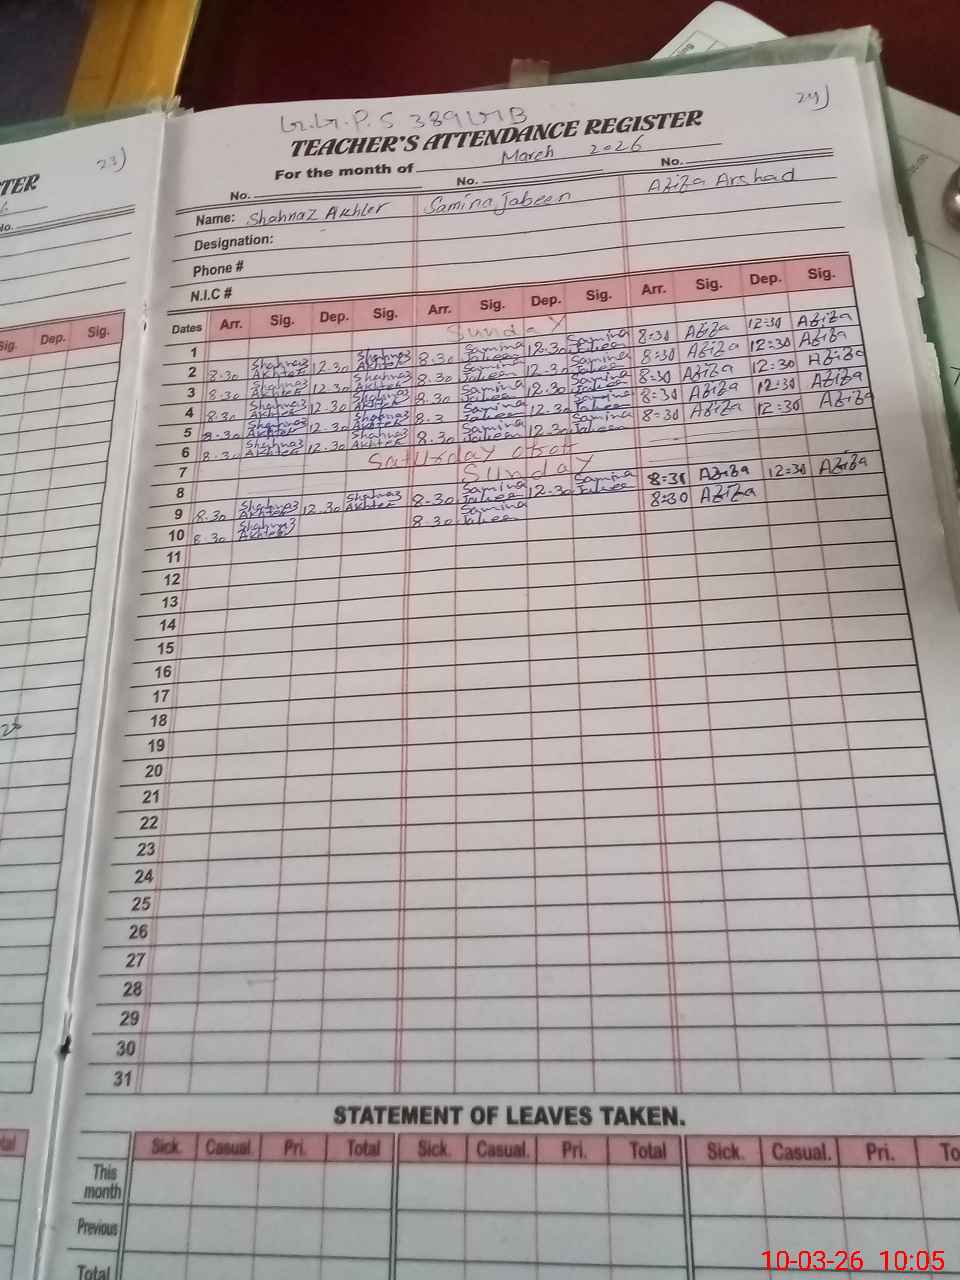 24)
G.G.P.S 389 WB
TEACHER'S ATTENDANCE REGISTER
For the month of March 2026
No. No. No.
Name: Shahnaz Akhter Samina Jabeen Aziza Arshad
Designation:
Phone #
N.I.C #
Dates Arr. Sig. Dep. Sig. Arr. Sig. Dep. Sig. Arr. Sig. Dep. Sig.
1 Sunday
2 8-30 Shahnaz Akhter 12-30 Shahnaz Akhter 8-30 Samina Jabeen 12-30 Samina Jabeen 8=30 Aziza 12=30 Aziza
3 8-30 Shahnaz Akhter 12-30 Shahnaz Akhter 8-30 Samina Jabeen 12-30 Samina Jabeen 8=30 Aziza 12=30 Aziza
4 8-30 Shahnaz Akhter 12-30 Shahnaz Akhter 8-30 Samina Jabeen 12-30 Samina Jabeen 8=30 Aziza 12=30 Aziza
5 8-30 Shahnaz Akhter 12-30 Shahnaz Akhter 8-3 Samina Jabeen 12-30 Samina Jabeen 8=30 Aziza 12=30 Aziza
6 8-30 Shahnaz Akhter 12-30 Shahnaz Akhter 8-30 Samina Jabeen 12-30 Samina Jabeen 8=30 Aziza 12=30 Aziza
7 Saturday
8 Sunday
9 8-30 Shahnaz Akhter 12-30 Shahnaz Akhter 8-30 Samina Jabeen 12-30 Samina Jabeen 8=30 Aziza 12=30 Aziza
10 8-30 Shahnaz Akhter 8-30 Samina Jabeen 8=30 Aziza
11
12
13
14
15
16
17
18
19
20
21
22
23
24
25
26
27
28
29
30
31
STATEMENT OF LEAVES TAKEN.
Sick. Casual. Pri. Total Sick. Casual. Pri. Total Sick. Casual. Pri. To
This month
Previous
Total
23)
TER
No.
Sig. Dep. Sig.
10-03-26 10:05